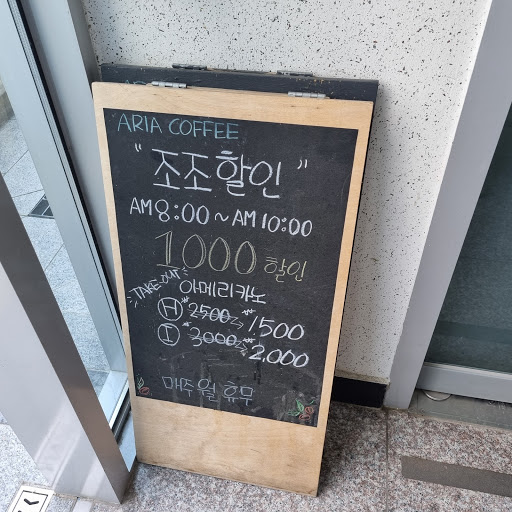 ARIA COFFEE
"조조할인"
AM 8:00 ~ AM 10:00
1000 할인
TAKE OUT 아메리카노
H 2500 → 1,500
I 3000 → 2,000
매주 월 휴무